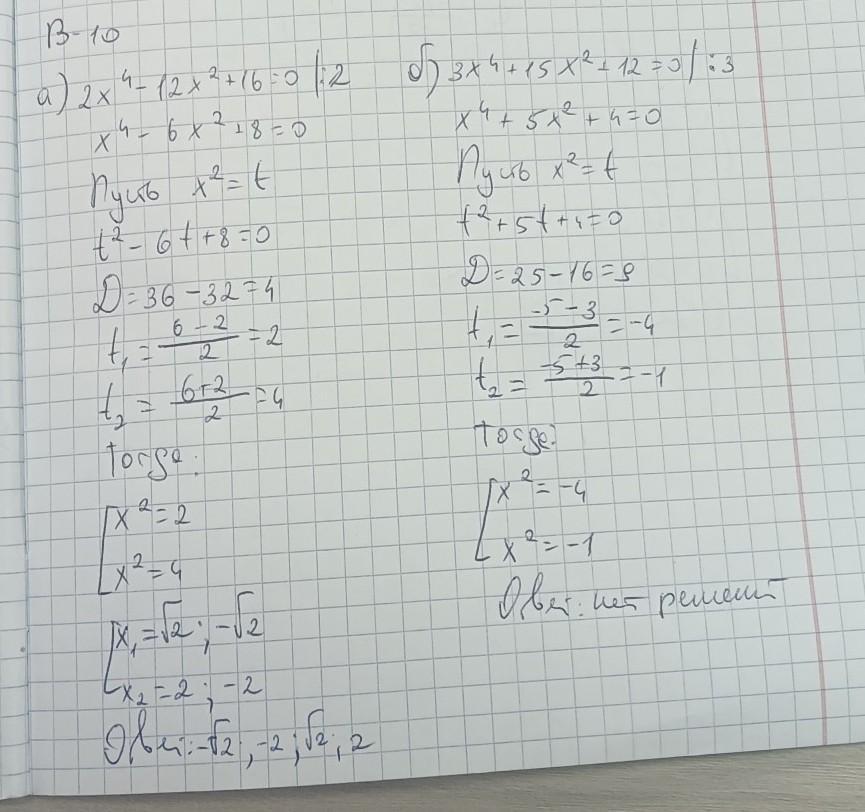 В-10
а) 2x⁴ - 12x² + 16 = 0 |:2
x⁴ - 6x² + 8 = 0
Пусть x² = t
t² - 6t + 8 = 0
D = 36 - 32 = 4
t₁ = (6 - 2)/2 = 2
t₂ = (6+2)/2 = 4
Тогда:
[x² = 2
x² = 4
[x₁ = √2; -√2
x₂ = 2; -2
Ответ: -√2; -2; √2; 2
б) 3x⁴ + 15x² + 12 = 0 | :3
x⁴ + 5x² + 4 = 0
Пусть x² = t
t² + 5t + 4 = 0
D = 25 - 16 = 9
t₁ = (-5 - 3)/2 = -4
t₂ = (-5 + 3)/2 = -1
Тогда:
[x² = -4
x² = -1
Ответ: нет решений